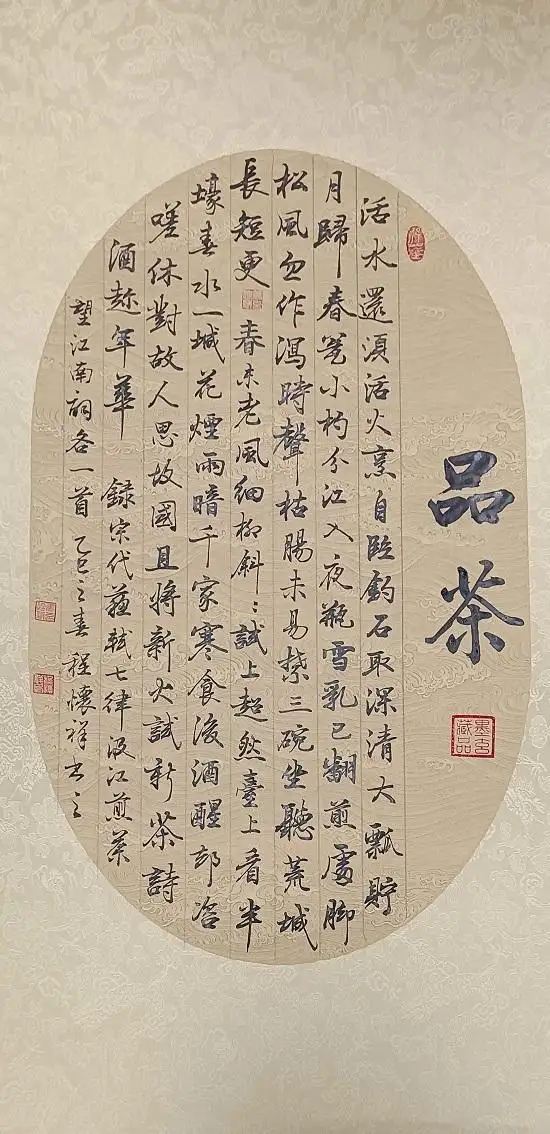 品茶
活水還須活火烹自臨釣石取深清大瓢貯
月歸春瓮小杓分江入夜瓶雪乳已翻煎處脚
松風忽作瀉時聲枯腸未易禁三碗坐聽荒城
長短更 春未老風細柳斜〻試上超然臺上看半
壕春水一城花煙雨暗千家寒食後酒醒卻咨
嗟休對故人思故國且將新火試新茶詩
酒趂年華 録宋代蘇軾七律汲江煎茶
望江南詞各一首 乙巳之春程懷祥書之
藏品